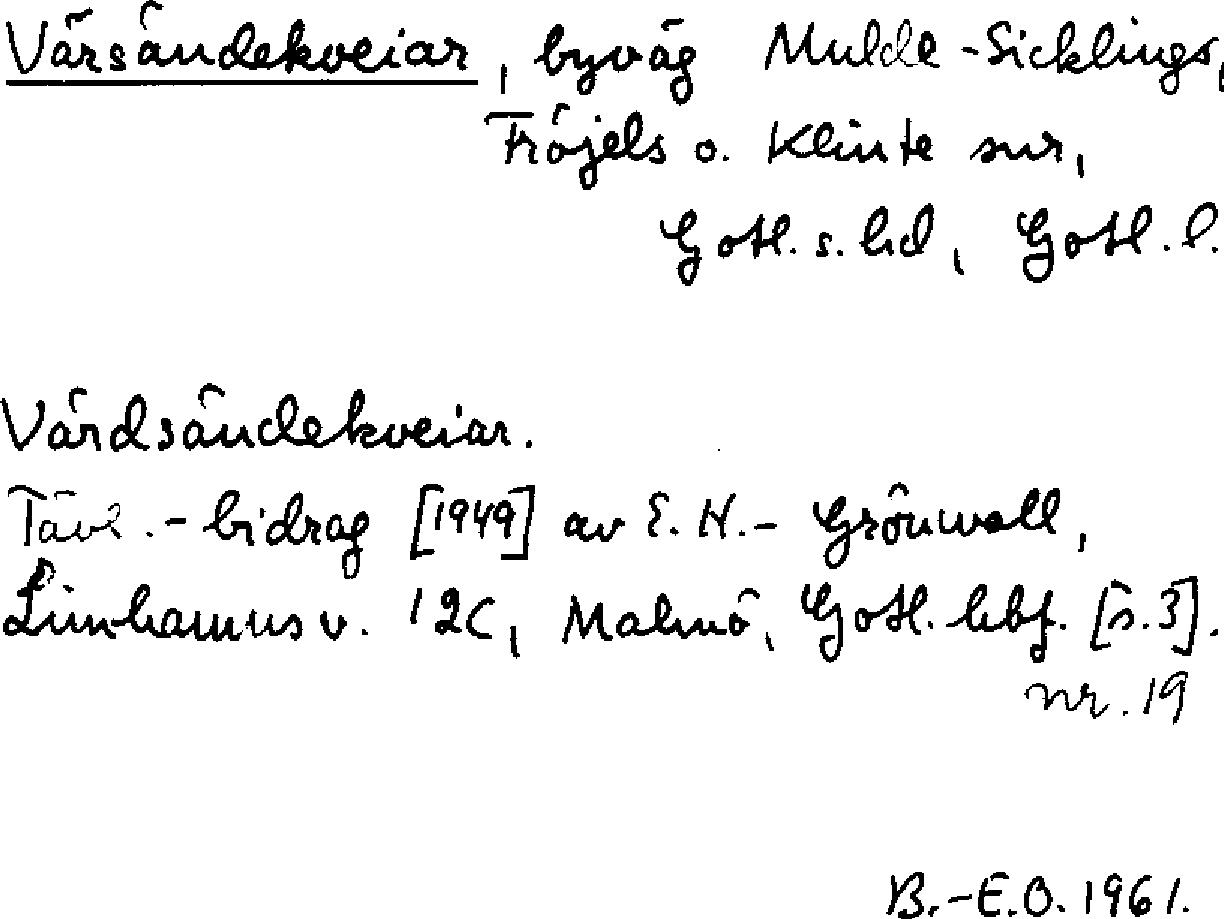 Värsändekveiar, byväg Mulde-Sicklings,
Fröjels o. Klinte snr,
Gotl. s. hd, Gotl. l.
Värdsändekveiar.
Tävl.-bidrag [1949] av E. H.- Grönwall,
Limhamnsv. 12C, Malmö, Gotl. hbf. [s.3].
nr. 19
B.-E.O. 1961.